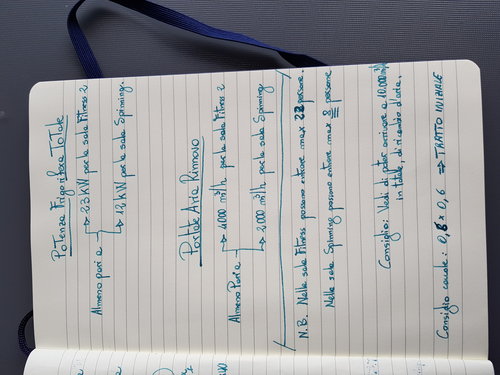 Potenza Frigorifera Totale
Almeno pari a
23 kW per la sala Fitness 2
12 kW per la sala Spinning.
Portate Aria Rinnovo
Almeno Pari a
4000 m³/h per la sala Fitness 2
2000 m³/h per la sala Spinning
N.B. Nella sala Fitness possono entrare max 22 persone.
Nella sala Spinning possono entrare max 8 persone
Consiglio: Vedi di poter arrivare a 10.000 m³/h
in totale, di ricambio d'aria.
Consiglio canale: 0,6 x 0,6 ⇒ TRATTO INIZIALE